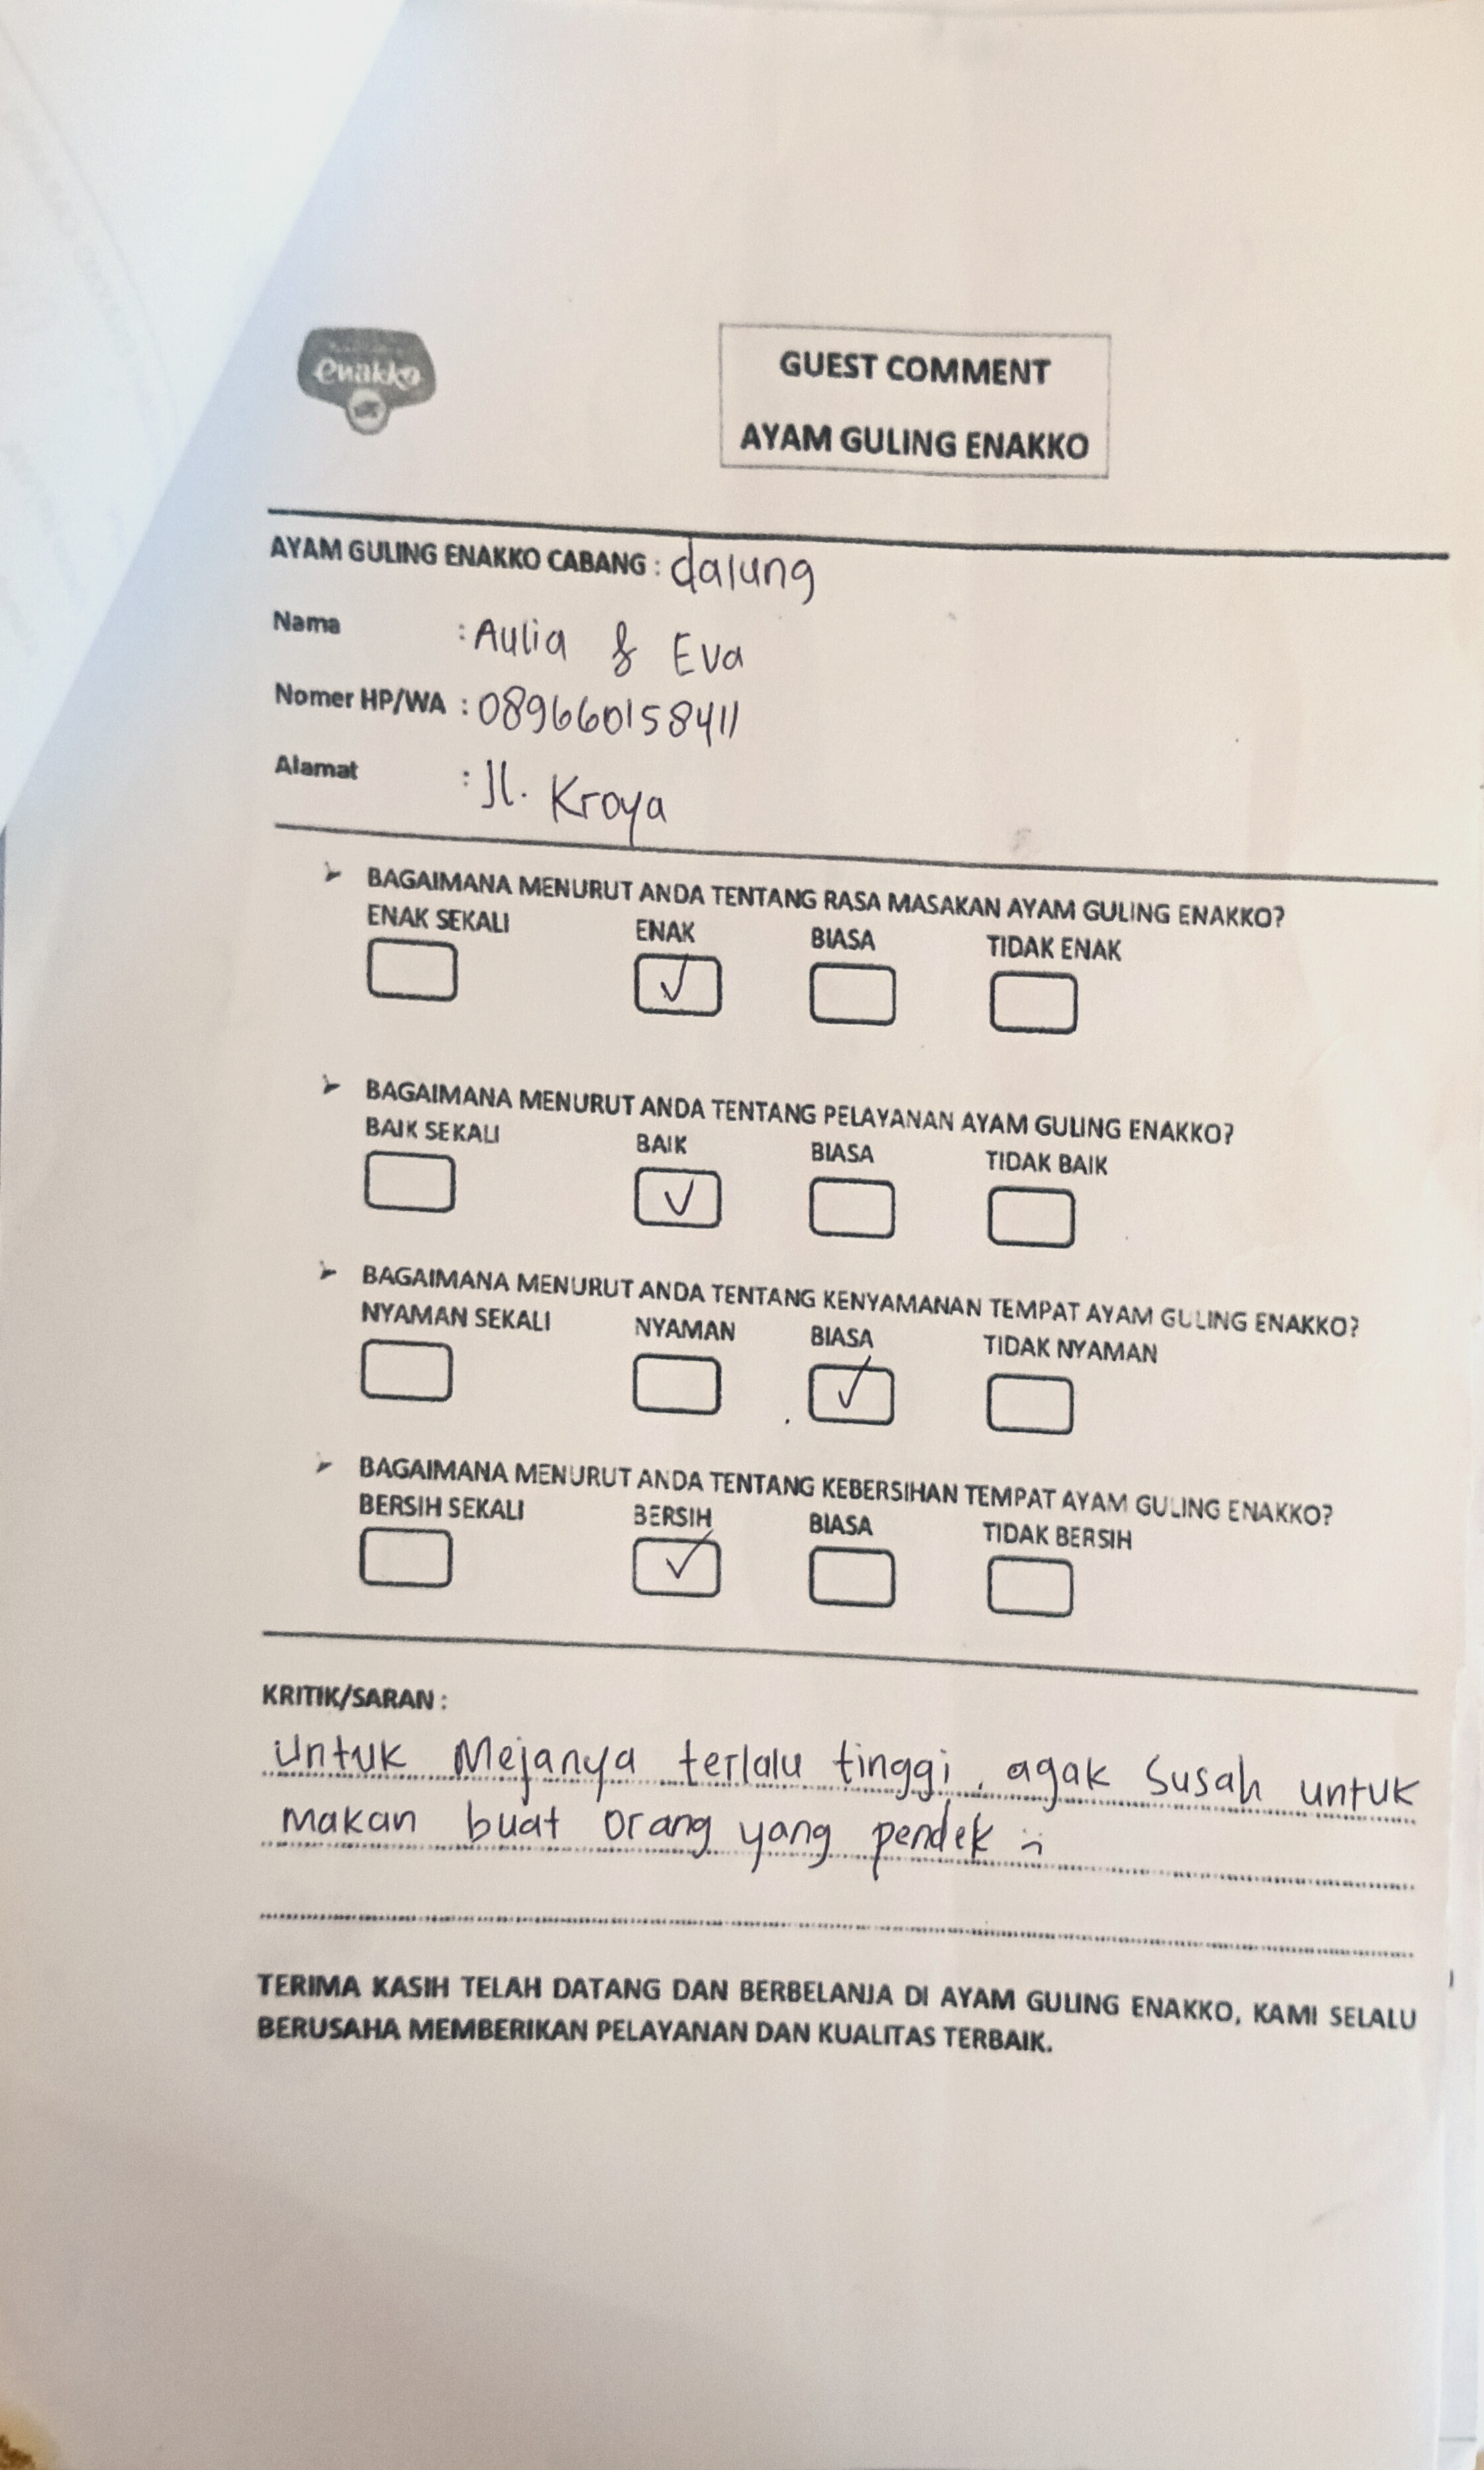 enakko
GUEST COMMENT
AYAM GULING ENAKKO
AYAM GULING ENAKKO CABANG : dalung
Nama : Aulia & Eva
Nomer HP/WA : 089660158411
Alamat : Jl. Kroya
➤ BAGAIMANA MENURUT ANDA TENTANG RASA MASAKAN AYAM GULING ENAKKO?
ENAK SEKALI ENAK BIASA TIDAK ENAK
✓
➤ BAGAIMANA MENURUT ANDA TENTANG PELAYANAN AYAM GULING ENAKKO?
BAIK SEKALI BAIK BIASA TIDAK BAIK
✓
➤ BAGAIMANA MENURUT ANDA TENTANG KENYAMANAN TEMPAT AYAM GULING ENAKKO?
NYAMAN SEKALI NYAMAN BIASA TIDAK NYAMAN
✓
➤ BAGAIMANA MENURUT ANDA TENTANG KEBERSIHAN TEMPAT AYAM GULING ENAKKO?
BERSIH SEKALI BERSIH BIASA TIDAK BERSIH
✓
KRITIK/SARAN :
untuk Mejanya terlalu tinggi, agak susah untuk
makan buat orang yang pendek :(
TERIMA KASIH TELAH DATANG DAN BERBELANJA DI AYAM GULING ENAKKO, KAMI SELALU
BERUSAHA MEMBERIKAN PELAYANAN DAN KUALITAS TERBAIK.